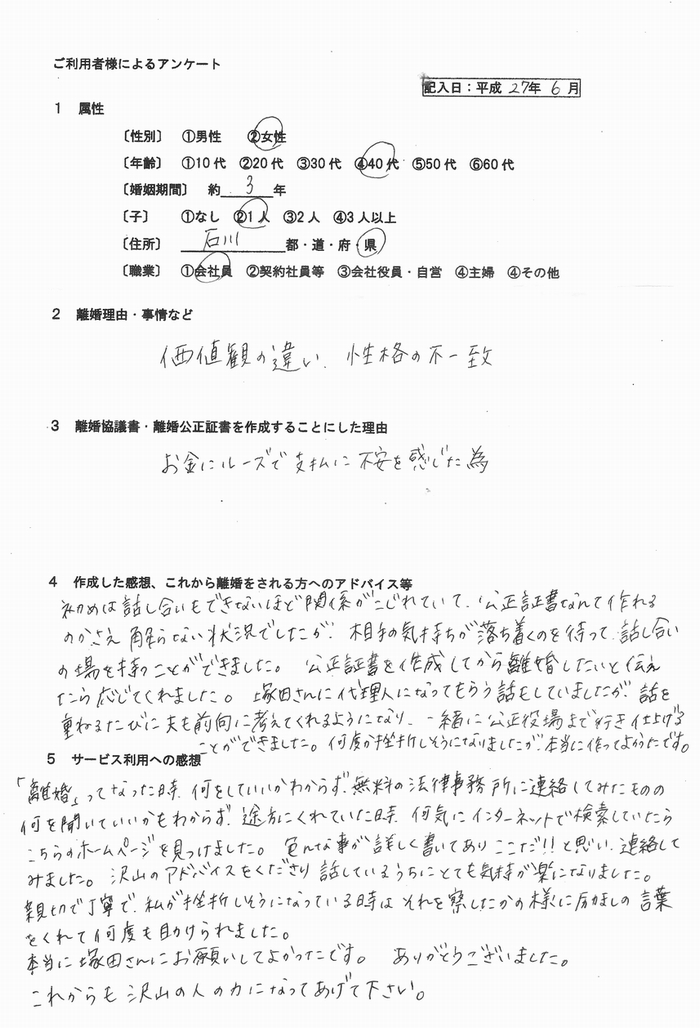 ご利用者様によるアンケート
記入日：平成 27年 6 月
1 属性
〔性別〕 ①男性 ②女性
〔年齢〕 ①10代 ②20代 ③30代 ④40代 ⑤50代 ⑥60代
〔婚姻期間〕 約 3 年
〔子〕 ①なし ②1人 ③2人 ④3人以上
〔住所〕 石川 都・道・府・県
〔職業〕 ①会社員 ②契約社員等 ③会社役員・自営 ④主婦 ④その他
2 離婚理由・事情など
価値観の違い、性格の不一致
3 離婚協議書・離婚公正証書を作成することにした理由
お金にルーズで支払に不安を感じた為
4 作成した感想、これから離婚をされる方へのアドバイス等
初めは話し合いもできないほど関係がこじれていて、公正証書なんて作れる
のかさえ解らない状況でしたが、相手の気持ちが落ち着くのを待って、話し合い
の場を持つことができました。公正証書を作成してから離婚したいと伝え
たら応じてくれました。塚田さんに代理人になってもらう話もしていましたが、話を
重ねるたびに夫も前向に考えてくれるようになり、一緒に公正役場まで行き仕上げる
ことができました。何度か挫折しそうになりましたが、本当に作ってよかったです。
5 サービス利用への感想
「離婚」ってなった時、何をしていいかわからず、無料の法律事務所に連絡してみたものの
何を聞いていいかもわからず、途方にくれていた時、何気にインターネットで検索していたら
こちらのホームページを見つけました。色んな事が詳しく書いてありここだ!!と思い、連絡して
みました。沢山のアドバイスをくださり話しているうちにとても気持が楽になりました。
親切で丁寧で、私が挫折しそうになっている時はそれを察したかの様に励ましの言葉
をくれて何度も助けられました。
本当に塚田さんにお願いしてよかったです。 ありがとうございました。
これからも沢山の人の力になってあげて下さい。